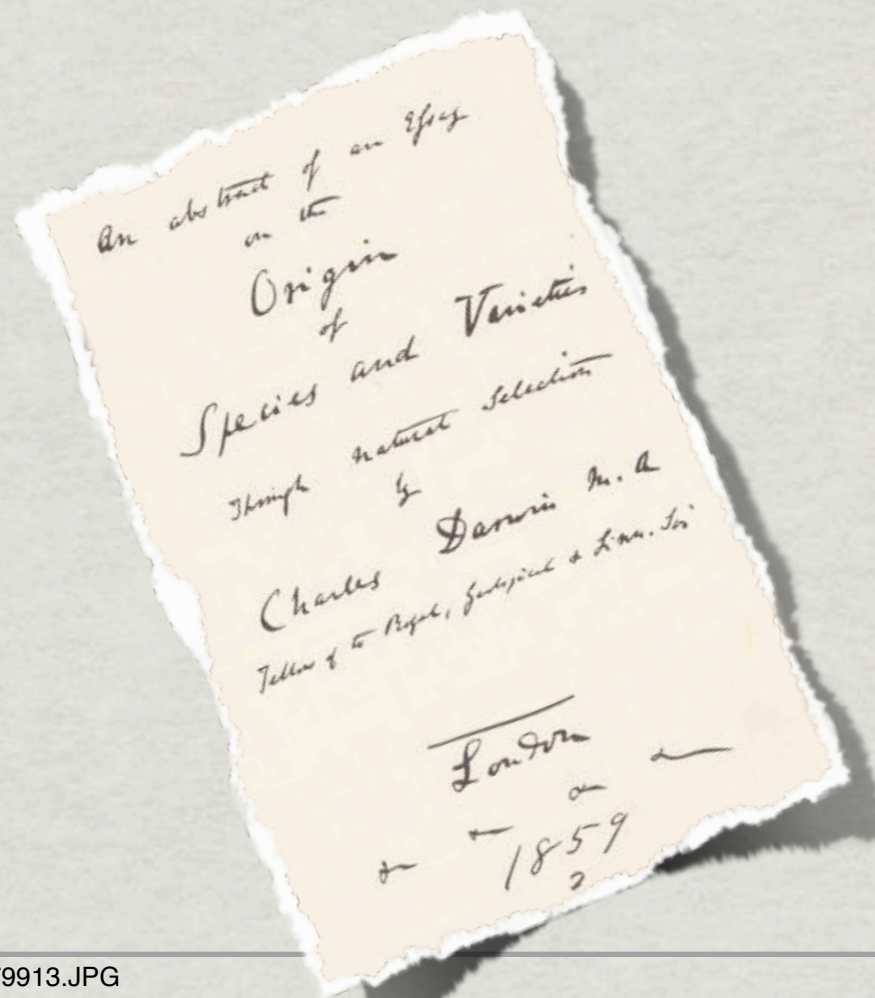 An abstract of an Essay
on the
Origin
of
Species and Varieties
Through natural selection
by
Charles Darwin M. A
Fellow of the Royal, Geological & Linn. Soc
London
&c &c &c &c
1859
9913.JPG